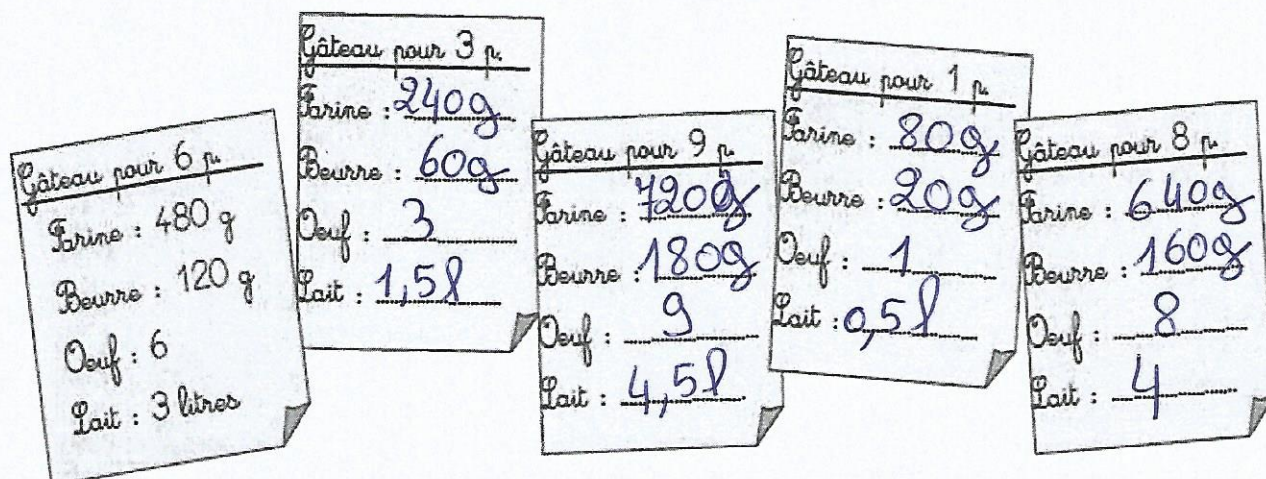 Gâteau pour 6 p.
Farine : 480 g
Beurre : 120 g
Oeuf : 6
Lait : 3 litres
Gâteau pour 3 p.
Farine : 240g
Beurre : 60g
Oeuf : 3
Lait : 1,5l
Gâteau pour 9 p.
Farine : 720g
Beurre : 180g
Oeuf : 9
Lait : 4,5l
Gâteau pour 1 p.
Farine : 80g
Beurre : 20g
Oeuf : 1
Lait : 0,5l
Gâteau pour 8 p.
Farine : 640g
Beurre : 160g
Oeuf : 8
Lait : 4